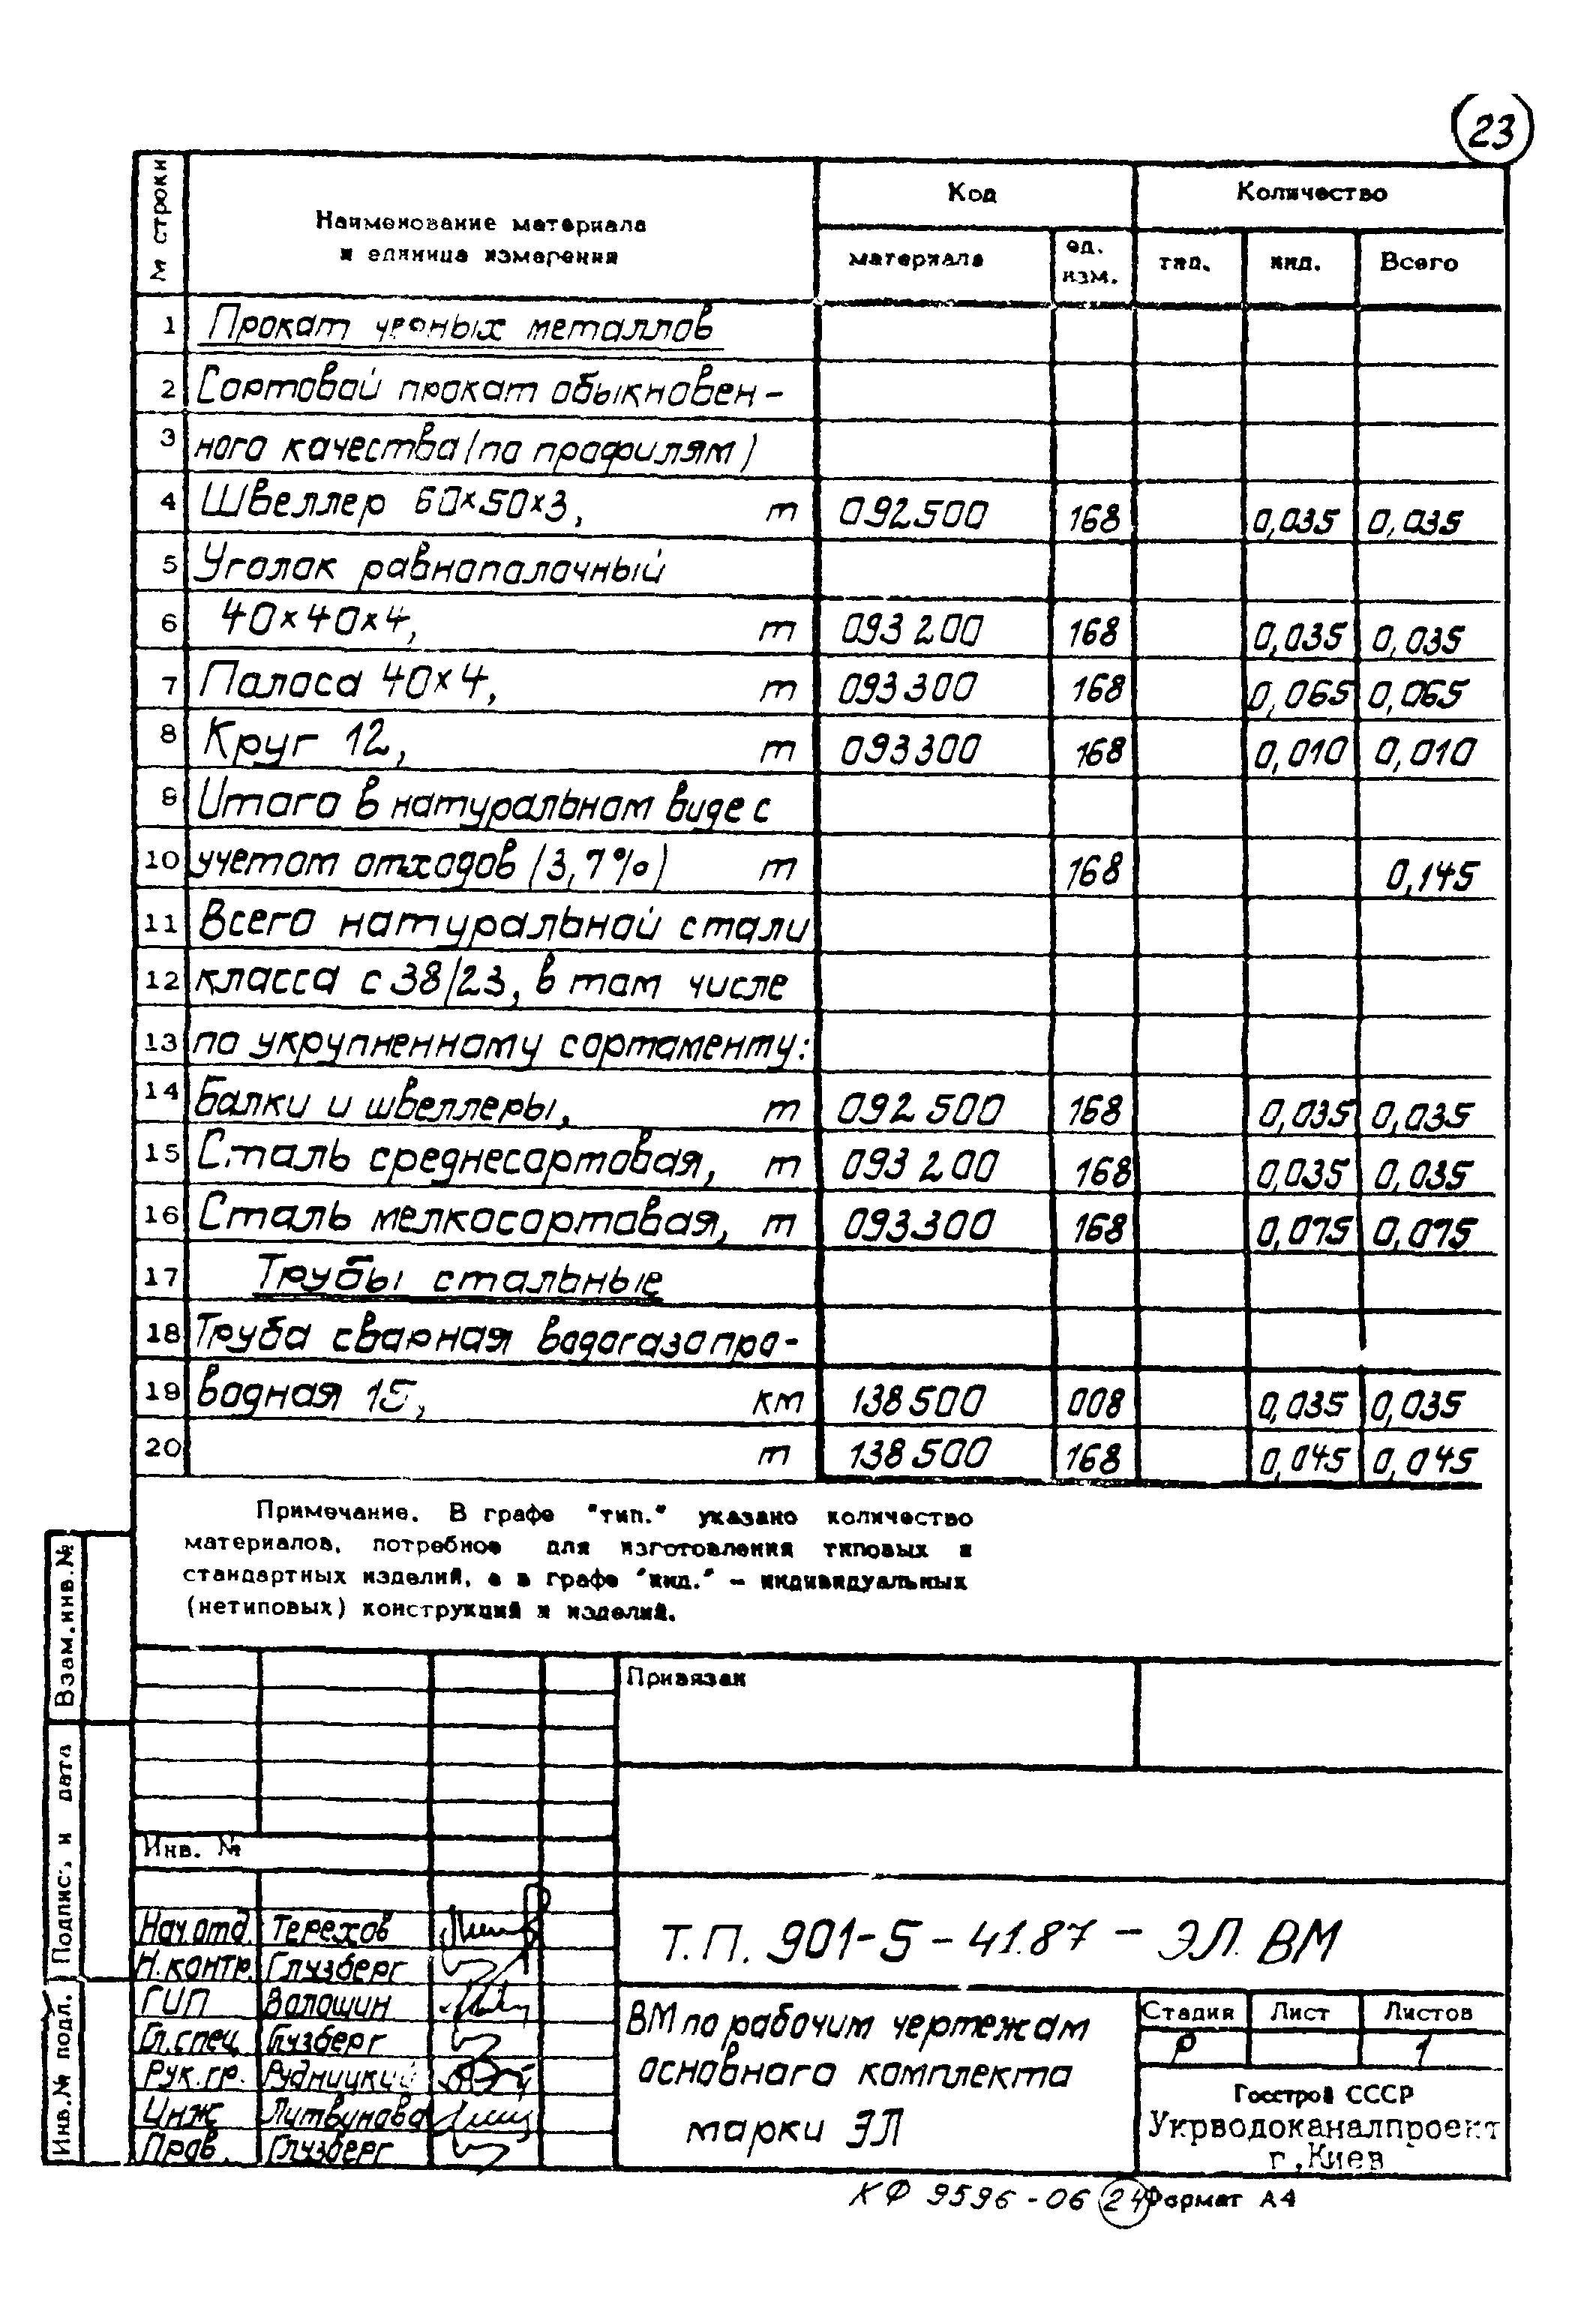 23
№ строки
Наименование материала
и единица измерения
Код
Количество
материала
ед.
изм.
тип.
инд.
Всего
1 Прокат черных металлов
2 Сортовой прокат обыкновен-
3 ного качества (по профилям)
4 Швеллер 60×50×3, т 092500 168 0,035 0,035
5 Уголок равнополочный
6 40×40×4, т 093200 168 0,035 0,035
7 Полоса 40×4, т 093300 168 0,065 0,065
8 Круг 12, т 093300 168 0,010 0,010
9 Итого в натуральном виде с
10 учетом отходов (3,7%) т 168 0,145
11 Всего натуральной стали
12 класса с 38/23, в том числе
13 по укрупненному сортаменту:
14 Балки и швеллеры, т 092500 168 0,035 0,035
15 Сталь среднесортовая, т 093200 168 0,035 0,035
16 Сталь мелкосортовая, т 093300 168 0,075 0,075
17 Трубы стальные
18 Труба сварная водогазопро-
19 водная 15, км 138500 008 0,035 0,035
20 т 138500 168 0,045 0,045
Примечание. В графе "тип." указано количество
материалов, потребное для изготовления типовых и
стандартных изделий, а в графе "инд." - индивидуальных
(нетиповых) конструкций и изделий.
Взам.инв.№
Подпис. и дата
Инв.№ подл.
Привязан
Инв. №
Нач.отд. Терехов
Н.контр. Глузберг
ГИП Волошин
Гл.спец. Глузберг
Рук.гр. Рудницкий
Инж Литвунова
Пров. Глузберг
Т.П. 901-5-41.87 - ЭЛ. ВМ
ВМ по рабочим чертежам
основного комплекта
марки ЭЛ
Стадия Лист Листов
Р 1
Госстрой СССР
Укрводоканалпроект
г.Киев
КФ 9596-06 24 Формат А4